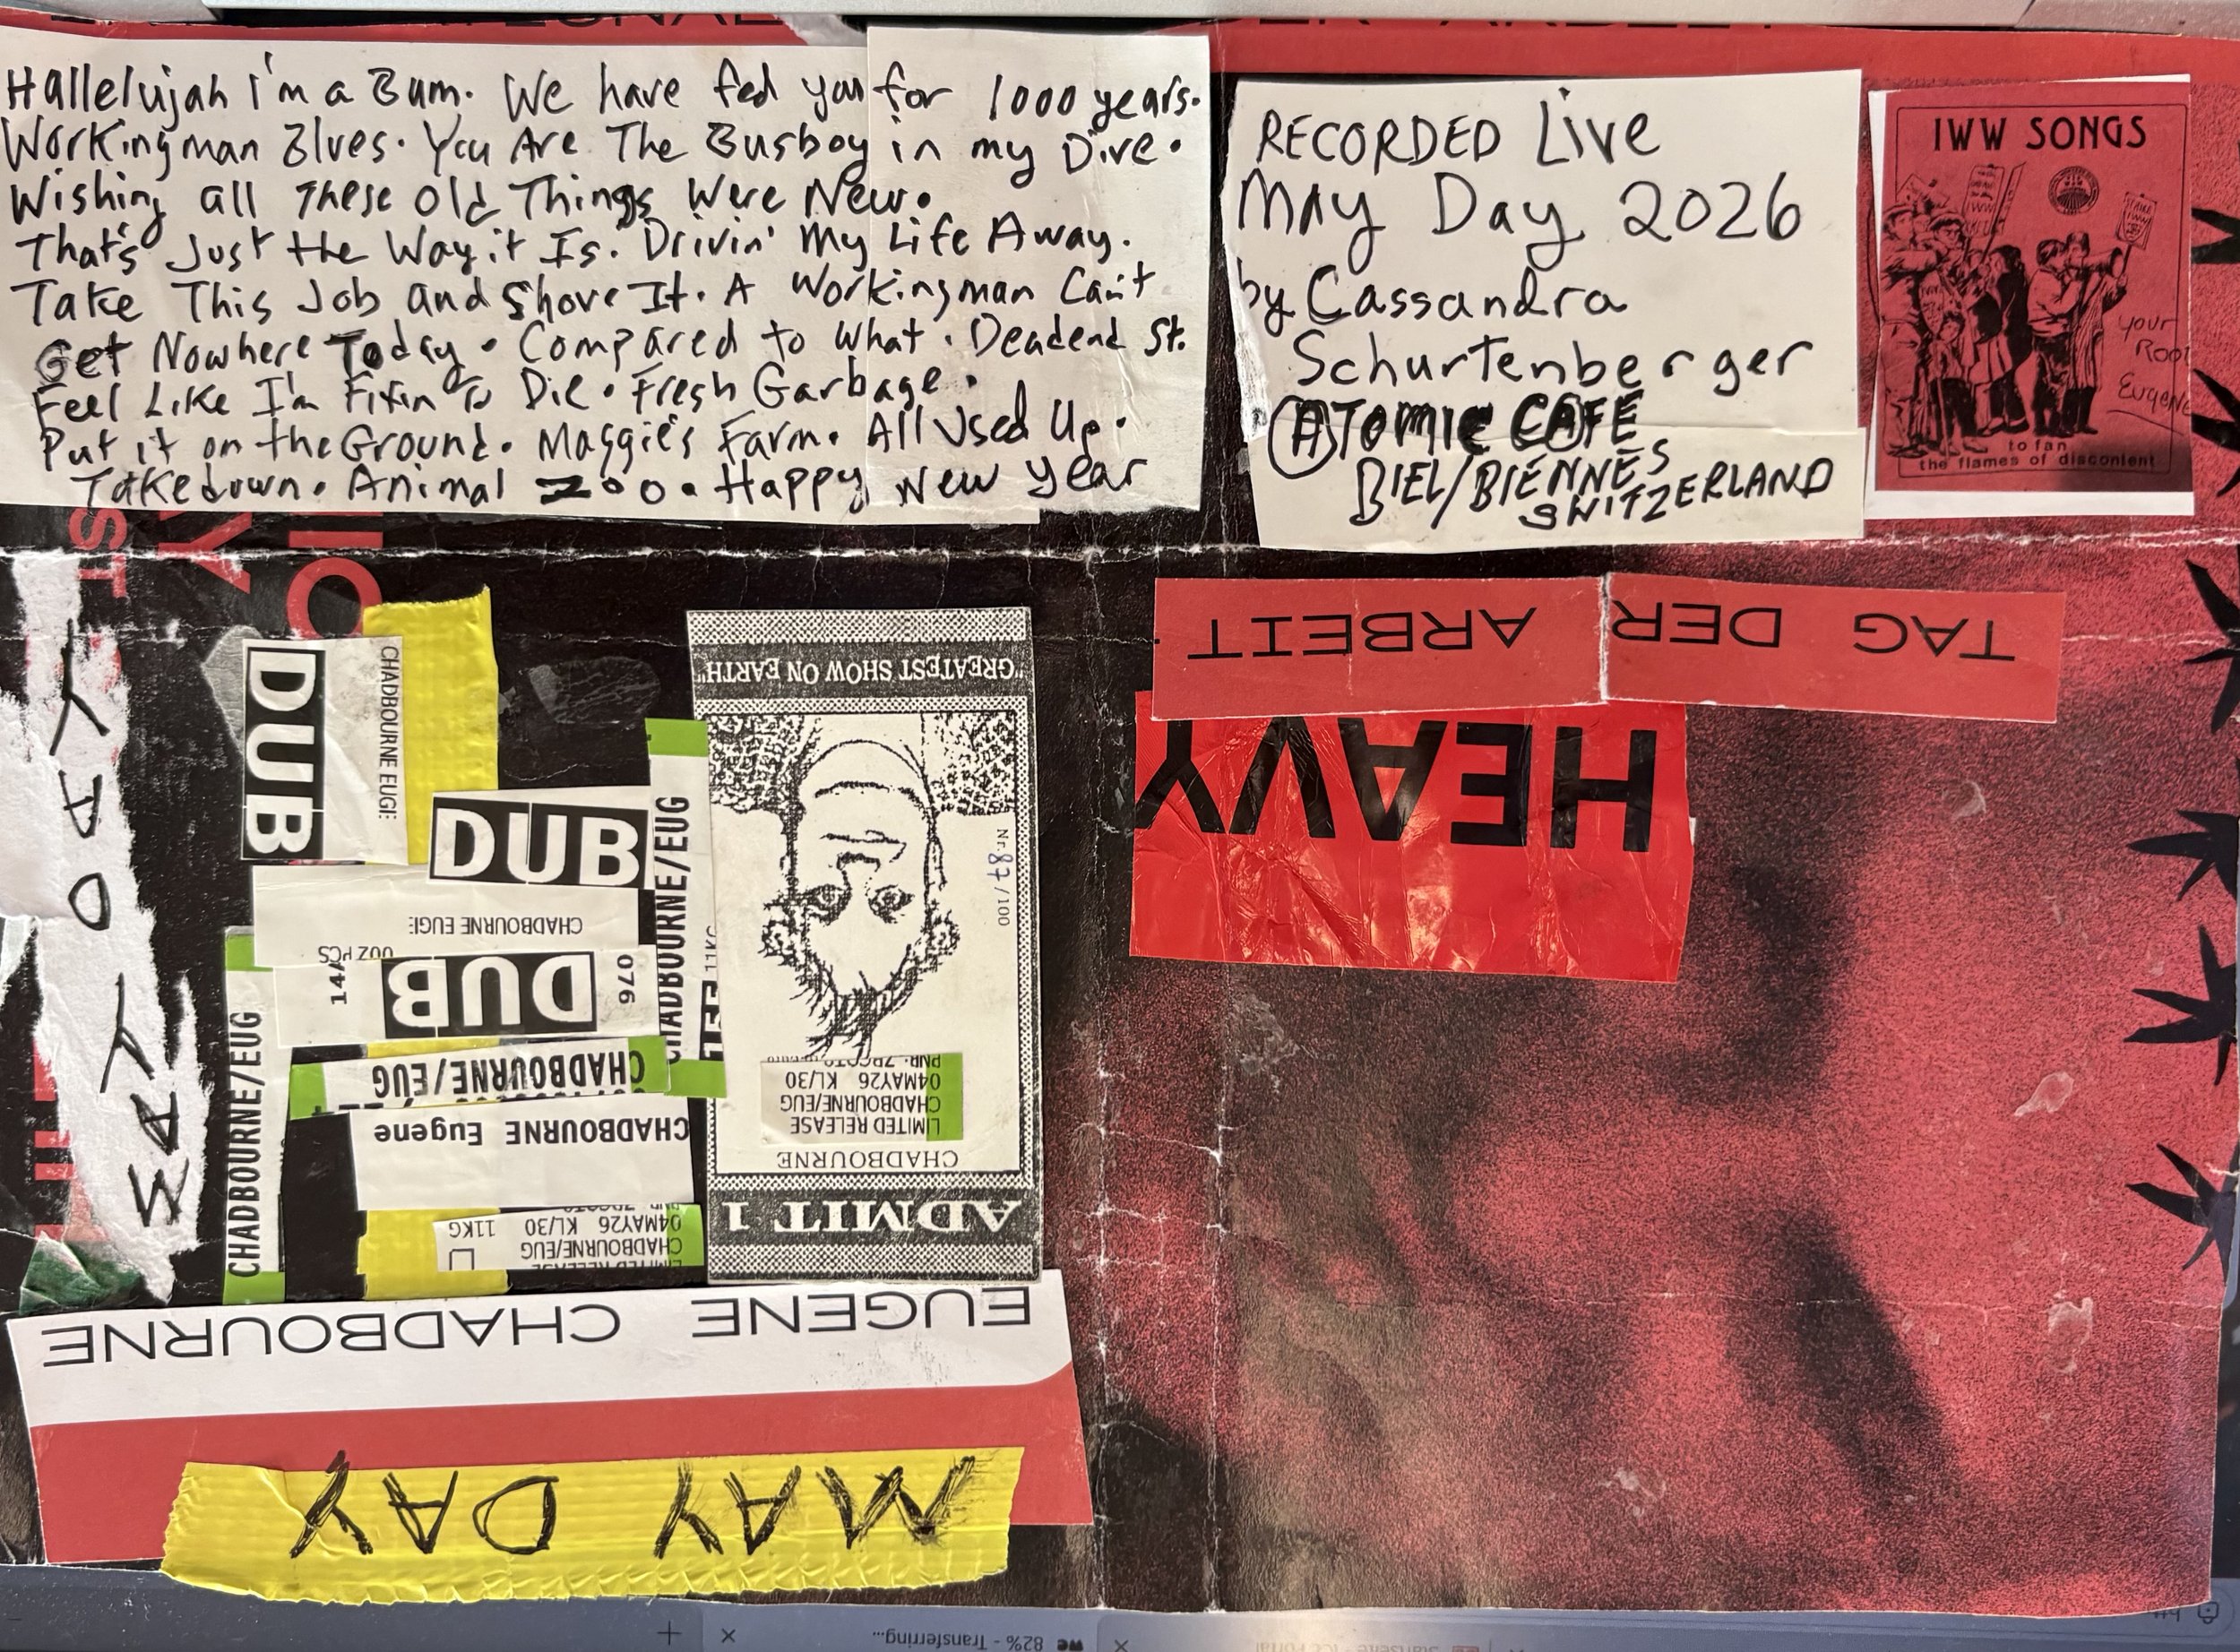 Hallelujah I'm a Bum. We have fed you for 1000 years.
Workingman Blues. You Are The Busboy in my Dive.
Wishing all These Old Things Were New.
That's Just the Way it Is. Drivin' My Life Away.
Take This Job and Shove It. A Workingman Can't
Get Nowhere Today. Compared to What. Deadend St.
Feel Like I'm Fixin To Die. Fresh Garbage.
Put it on the Ground. Maggie's Farm. All Used Up.
Takedown. Animal Zoo. Happy New Year
RECORDED Live
May Day 2026
by Cassandra
Schurtenberger
ATOMIC CAFE
BIEL/BIENNES
SWITZERLAND
IWW SONGS
your
Eugene
to fan
the flames of discontent
TAG DER ARBEIT
HEAVY
MAY DAY
DUB
CHADBOURNE EUG
DUB
CHADBOURNE EUG
002 PCS
14A
DUB
970
CHADBOURNE/EUG
CHADBOURNE/EUG
11KG
CHADBOURNE/EUG
CHADBOURNE Eugene
LIMITED RELEASE
CHADBOURNE/EUG
04MAY26 KL/30 11KG
ADMIT 1
CHADBOURNE
LIMITED RELEASE
CHADBOURNE/EUG
04MAY26 KL/30
Nr. 87/100
"GREATEST SHOW ON EARTH"
EUGENE CHADBOURNE
MAY DAY
82% - Transferring...